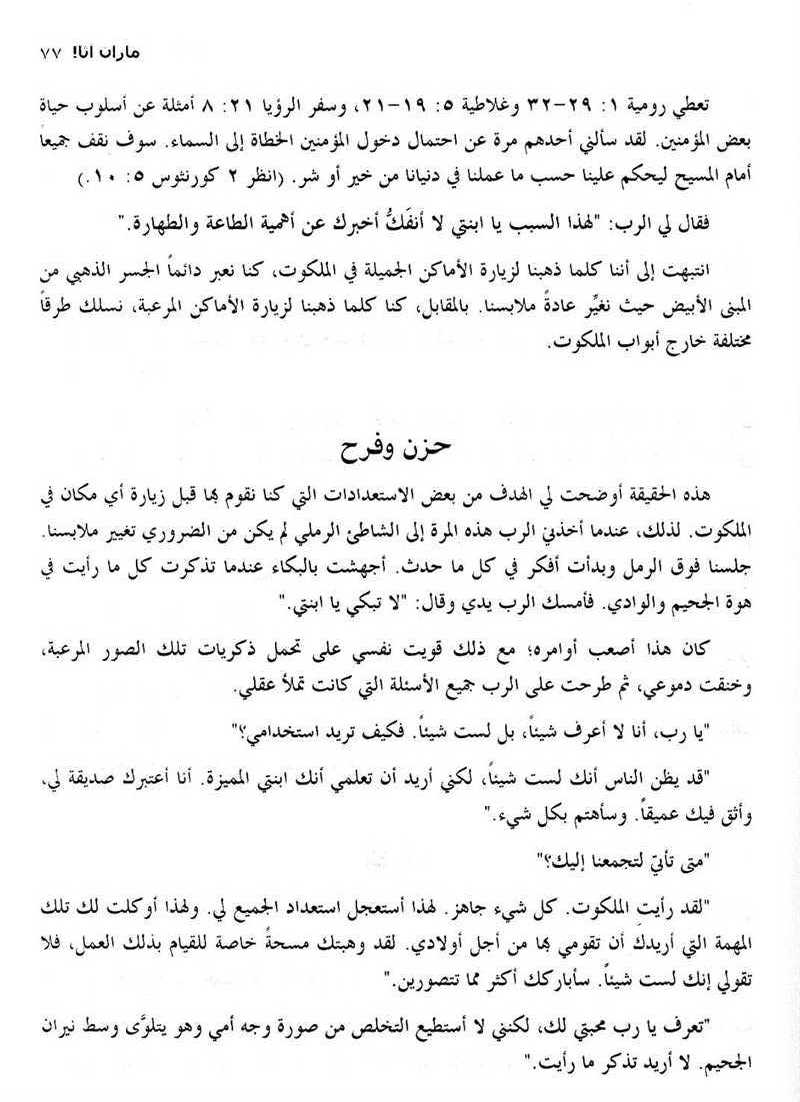 ماران اتا! ٧٧
تعطي رومية ١: ٢٩-٣٢ وغلاطية ٥: ١٩-٢١، وسفر الرؤيا ٢١: ٨ أمثلة عن أسلوب حياة
بعض المؤمنين. لقد سألني أحدهم مرة عن احتمال دخول المؤمنين الخطاة إلى السماء. سوف نقف جميعاً
أمام المسيح ليحكم علينا حسب ما عملنا في دنيانا من خير أو شر. (انظر ٢ كورنثوس ٥: ١٠.)
فقال لي الرب: "لهذا السبب يا ابنتي لا أنفَكُّ أخبرك عن أهمية الطاعة والطهارة."
انتبهت إلى أننا كلما ذهبنا لزيارة الأماكن الجميلة في الملكوت، كنا نعبر دائماً الجسر الذهبي من
المبنى الأبيض حيث نغيِّر عادةً ملابسنا. بالمقابل، كنا كلما ذهبنا لزيارة الأماكن المرعبة، نسلك طرقاً
مختلفة خارج أبواب الملكوت.
حزن وفرح
هذه الحقيقة أوضحت لي الهدف من بعض الاستعدادات التي كنا نقوم بها قبل زيارة أي مكان في
الملكوت. لذلك، عندما أخذني الرب هذه المرة إلى الشاطئ الرملي لم يكن من الضروري تغيير ملابسنا.
جلسنا فوق الرمل وبدأت أفكر في كل ما حدث. أجهشت بالبكاء عندما تذكرت كل ما رأيت في
هوة الجحيم والوادي. فأمسك الرب يدي وقال: "لا تبكي يا ابنتي."
كان هذا أصعب أوامره؛ مع ذلك قويت نفسي على تحمل ذكريات تلك الصور المرعبة،
وخنقت دموعي، ثم طرحت على الرب جميع الأسئلة التي كانت تملأ عقلي.
"يا رب، أنا لا أعرف شيئاً، بل لست شيئاً. فكيف تريد استخدامي؟"
"قد يظن الناس أنك لست شيئاً، لكني أريد أن تعلمي أنك ابنتي المميزة. أنا أعتبرك صديقة لي،
وأثق فيك عميقاً. وسأهتم بكل شيء."
"متى تأتي لتجمعنا إليك؟"
"لقد رأيت الملكوت. كل شيء جاهز. لهذا أستعجل استعداد الجميع لي. ولهذا أوكلت لك تلك
المهمة التي أريدك أن تقومي بها من أجل أولادي. لقد وهبتك مسحةً خاصة للقيام بذلك العمل، فلا
تقولي إنك لست شيئاً. سأباركك أكثر مما تتصورين."
"تعرف يا رب محبتي لك، لكنني لا أستطيع التخلص من صورة وجه أمي وهو يتلوَّى وسط نيران
الجحيم. لا أريد تذكر ما رأيت."